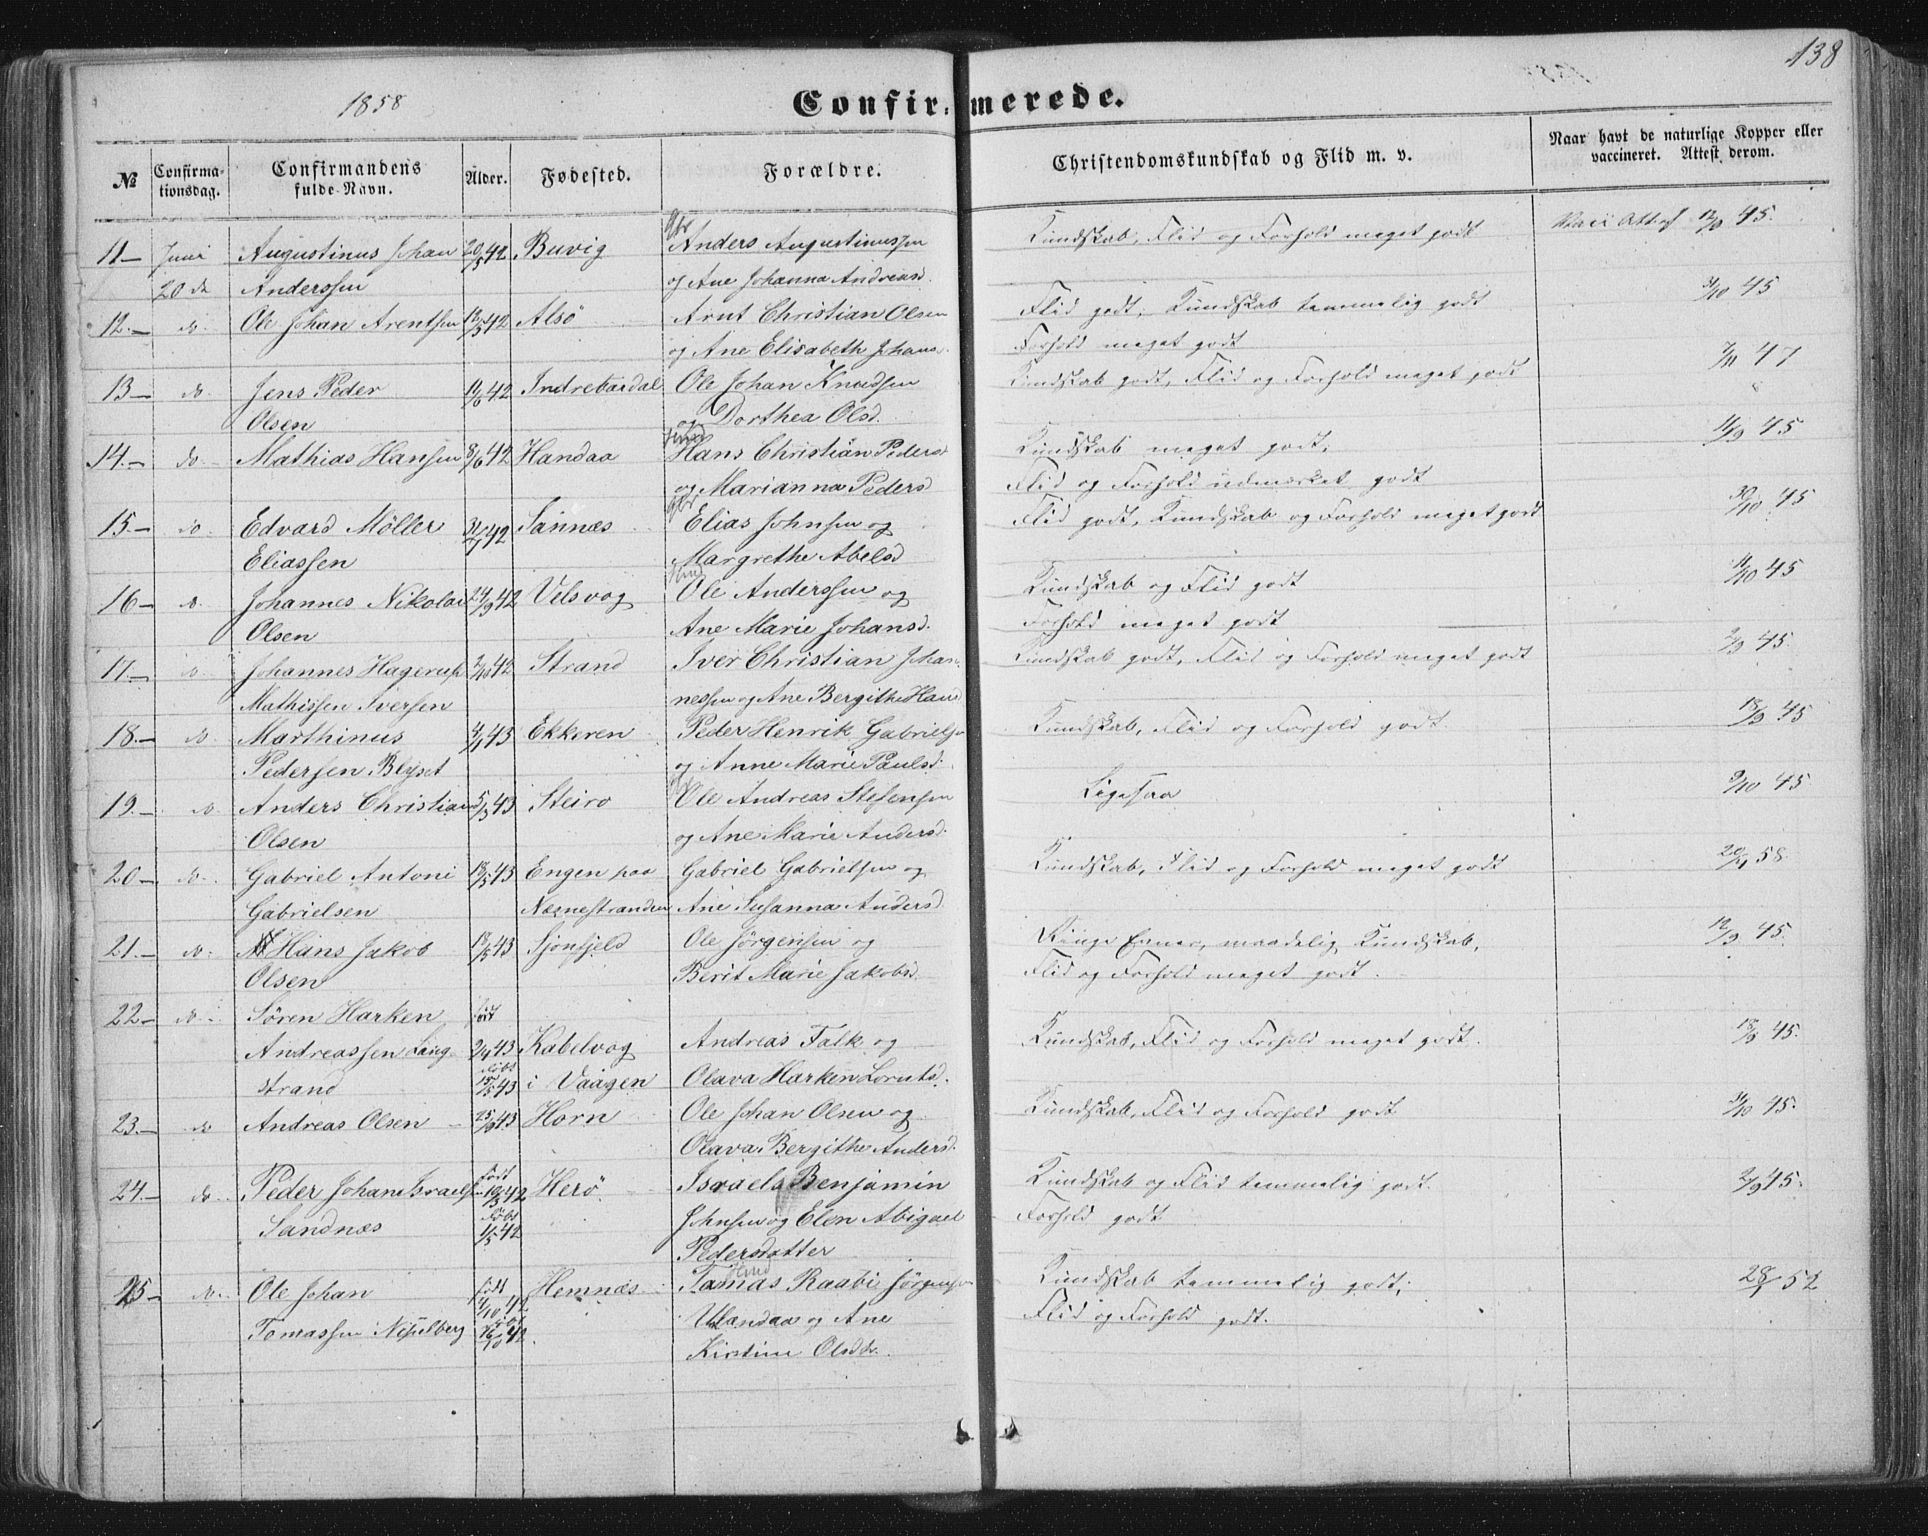 138
1858
Confirmerede.
№
Confirma-
tionsdag.
Confirmandens
fulde Navn.
Alder.
Fødested.
Forældre.
Christendomskundskab og Flid m. v.
Naar havt de naturlige Kopper eller
vaccineret. Attest derom.
11 - Juni Augustinus Johan 20/5 42 Buvig Anders Augustinussen Kundskab, Flid og Forhold meget godt 45.
20de Anderssen og Ane Johanna Andreasd.
12. - do. Ole Johan Arentsen 12/5 42 Alsö Arnt Christian Olsen Flid godt, Kundskab temmelig godt 45
og Ane Elisabeth Johans. Forhold meget godt
13 - do. Jens Peder 11/6 42 Indrebardal Ole Johan Knudsen Kundskab godt, Flid og Forhold meget godt 47
Olsen og Dorthea Olsd.
14. - do. Mathias Hansen 8/6 42 Handaa Hans Christian Peders Kundskab meget godt, 11/9 45
og Marianna Peders Flid og Forhold udmærket godt
15 - do. Edvard Möller 42 Sannæs Elias Johnsen og Flid godt, Kundskab og Forhold meget godt 30/10 45
Eliassen Margrethe Abelsd
16 - do. Johannes Nikolai 24/9 42 Velsvog Ole Anderssen og Kundskab og Flid godt 45
Olsen Ane Marie Johansd. Forhold meget godt
17. - do. Johannes Hagerup 42 Strand Iver Christian Johan- Kundskab godt, Flid og Forhold meget godt 2/9 45
Mathissen Iversen nessen og Ane Bergithe Hansd
18. - do. Marthinus 43 Ekkeren Peder Henrik Gabrielsen Kundskab, Flid og Forhold godt 18/9 45
Pedersen Blyset og Anne Marie Paulsd.
19. - do. Anders Christian 5/3 43 Steiro Ole Andreas Stefensen Ligesaa 9/10 45
Olsen og Ane Marie Andersd.
20 - do. Gabriel Antoni 18/5 43 Engen paa Gabriel Gabrielsen og Kundskab, Flid og Forhold meget godt 58
Gabrielsen Næsnestranden Ane Susanna Andersd
21. - do. Hans Jakob 18/5 43 Sjonfjeld Ole Jörgensen og Ringe Evner, maadelig Kundskab, 12/9 45.
Olsen Berit Marie Jakobsd. Flid og Forhold meget godt.
22 - do. Sören Harken födt
Andreassen Lang- 43 Kabelvog Andreas Falk og Kundskab, Flid og Forhold meget godt. 45.
strand döbt 43 i Vaagen Olava Harken Lorntsd.
23. - do Andreas Olsen 43 Horn Ole Johan Olsen og Kundskab, Flid og Forhold godt 45.
Olava Bergithe Andersd.
24. - do. Peder Johan Israelsen födt 42 Herö Israels Benjamin Kundskab og Flid temmelig godt. 2/9 45.
Sandnæs döbt 1/5 42 Johnsen og Elen Abigael Forhold godt
Pedersdatter
25 - do. Ole Johan födt 42 Hemnæs Tomas Raabi Jörgensen Kundskab temmelig godt; 52
Tomassen döbt 42. og Ane Flid og Forhold godt.
Kirstine Olsdtr.